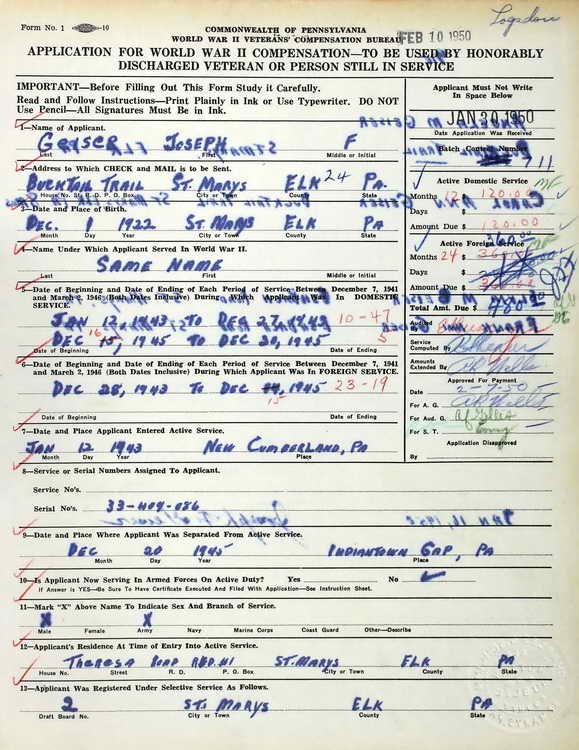 Logsdon
Form No. 1
COMMONWEALTH OF PENNSYLVANIA
WORLD WAR II VETERANS' COMPENSATION BUREAU
FEB 10 1950
APPLICATION FOR WORLD WAR II COMPENSATION—TO BE USED BY HONORABLY
DISCHARGED VETERAN OR PERSON STILL IN SERVICE
IMPORTANT—Before Filling Out This Form Study it Carefully.
Read and Follow Instructions—Print Plainly in Ink or Use Typewriter. DO NOT
Use Pencil—All Signatures Must Be in Ink.
1—Name of Applicant.
GEISER JOSEPH F
Last First Middle or Initial
2—Address to Which CHECK and MAIL is to be Sent.
BUCKTAIL TRAIL ST. MARYS ELK 24 PA.
House No. St. R. D. P. O. Box City or Town County State
3—Date and Place of Birth.
DEC. 9 1922 ST. MARYS ELK PA.
Month Day Year City or Town County State
4—Name Under Which Applicant Served In World War II.
SAME NAME
Last First Middle or Initial
5—Date of Beginning and Date of Ending of Each Period of Service Between December 7, 1941
and March 2, 1946 (Both Dates Inclusive) During Which Applicant Was In DOMESTIC
SERVICE.
JAN 1943 TO DEC 27, 1943 10-47
DEC 15, 1945 TO DEC 20, 1945 5
16
Date of Beginning Date of Ending
6—Date of Beginning and Date of Ending of Each Period of Service Between December 7, 1941
and March 2, 1946 (Both Dates Inclusive) During Which Applicant Was In FOREIGN SERVICE.
DEC 28, 1943 TO DEC 1945 23-19
15
Date of Beginning Date of Ending
7—Date and Place Applicant Entered Active Service.
JAN 12 1943 NEW CUMBERLAND, PA
Month Day Year Place
8—Service or Serial Numbers Assigned To Applicant.
Service No's.
Serial No's. 33-404-086
9—Date and Place Where Applicant Was Separated From Active Service.
DEC 20 1945 INDIANTOWN GAP, PA
Month Day Year Place
10—Is Applicant Now Serving In Armed Forces On Active Duty? Yes No ✓
If Answer is YES—Be Sure To Have Certificate Executed And Filed With Application—See Instruction Sheet.
11—Mark "X" Above Name To Indicate Sex and Branch of Service.
X X
Male Female Army Navy Marine Corps Coast Guard Other—Describe
12—Applicant's Residence At Time of Entry Into Active Service.
THERESA ROAD R.D. #1 ST. MARYS ELK PA
House No. Street R. D. P. O. Box City or Town County State
13—Applicant Was Registered Under Selective Service As Follows.
2 ST. MARYS ELK PA
Draft Board No. City or Town County State
Applicant Must Not Write
In Space Below
JAN 30 1950
Date Application Was Received
Batch Control Number
711
Active Domestic Service
Months 12 $ 120.00
Days $
Amount Due $ 120.00
Active Foreign Service
Months 24 $
Days $
Amount Due $
Total Amt. Due $
Audited
Service
Computed By
Amounts
Extended By
Approved For Payment
Date 2-9-50
For A. G.
For Aud. G.
For S. T.
Application Disapproved
By